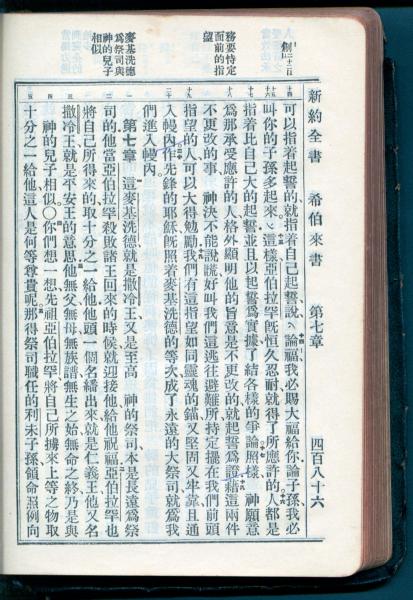 新約全書 希伯來書 第七章 四百八十六
可以指着起誓的就指着自己起誓說、論福我必賜大福給你、論子孫、我必
叫你的子孫多起來。這樣亞伯拉罕旣恒久忍耐就得了所應許的人都是
指着比自己大的起誓並且以起誓爲實據了結各樣的爭論照樣、神願意
爲那承受應許的人格外顯明他的旨意是不更改的、就起誓爲證、藉這兩件
不更改的事、神決不能說謊好叫我們這逃往避難所持定擺在我們前頭
指望的人可以大得勉勵我們有這指望如同靈魂的錨又堅固又牢靠且通
入幔內作先鋒的耶穌旣照着麥基洗德的等次成了永遠的大祭司就爲我
們進入幔內
第七章 這麥基洗德就是撒冷王又是至高 神的祭司本是長遠爲祭
司的他當亞伯拉罕殺敗諸王回來的時候就迎接他給他祝福亞伯拉罕也
將自己所得來的取十分之一給他他頭一個名繙出來就是仁義王他又名
撒冷王就是平安王的意思他無父無母無族譜無生之始無命之終乃是與
神的兒子相似〇你們想一想先祖亞伯拉罕將自己所擄來上等之物取
十分之一給他這人是何等尊貴呢那得祭司職任的利未子孫領命照例向
務要持定
面前的指
望
麥基洗德
爲祭司與
神的兒子
相似